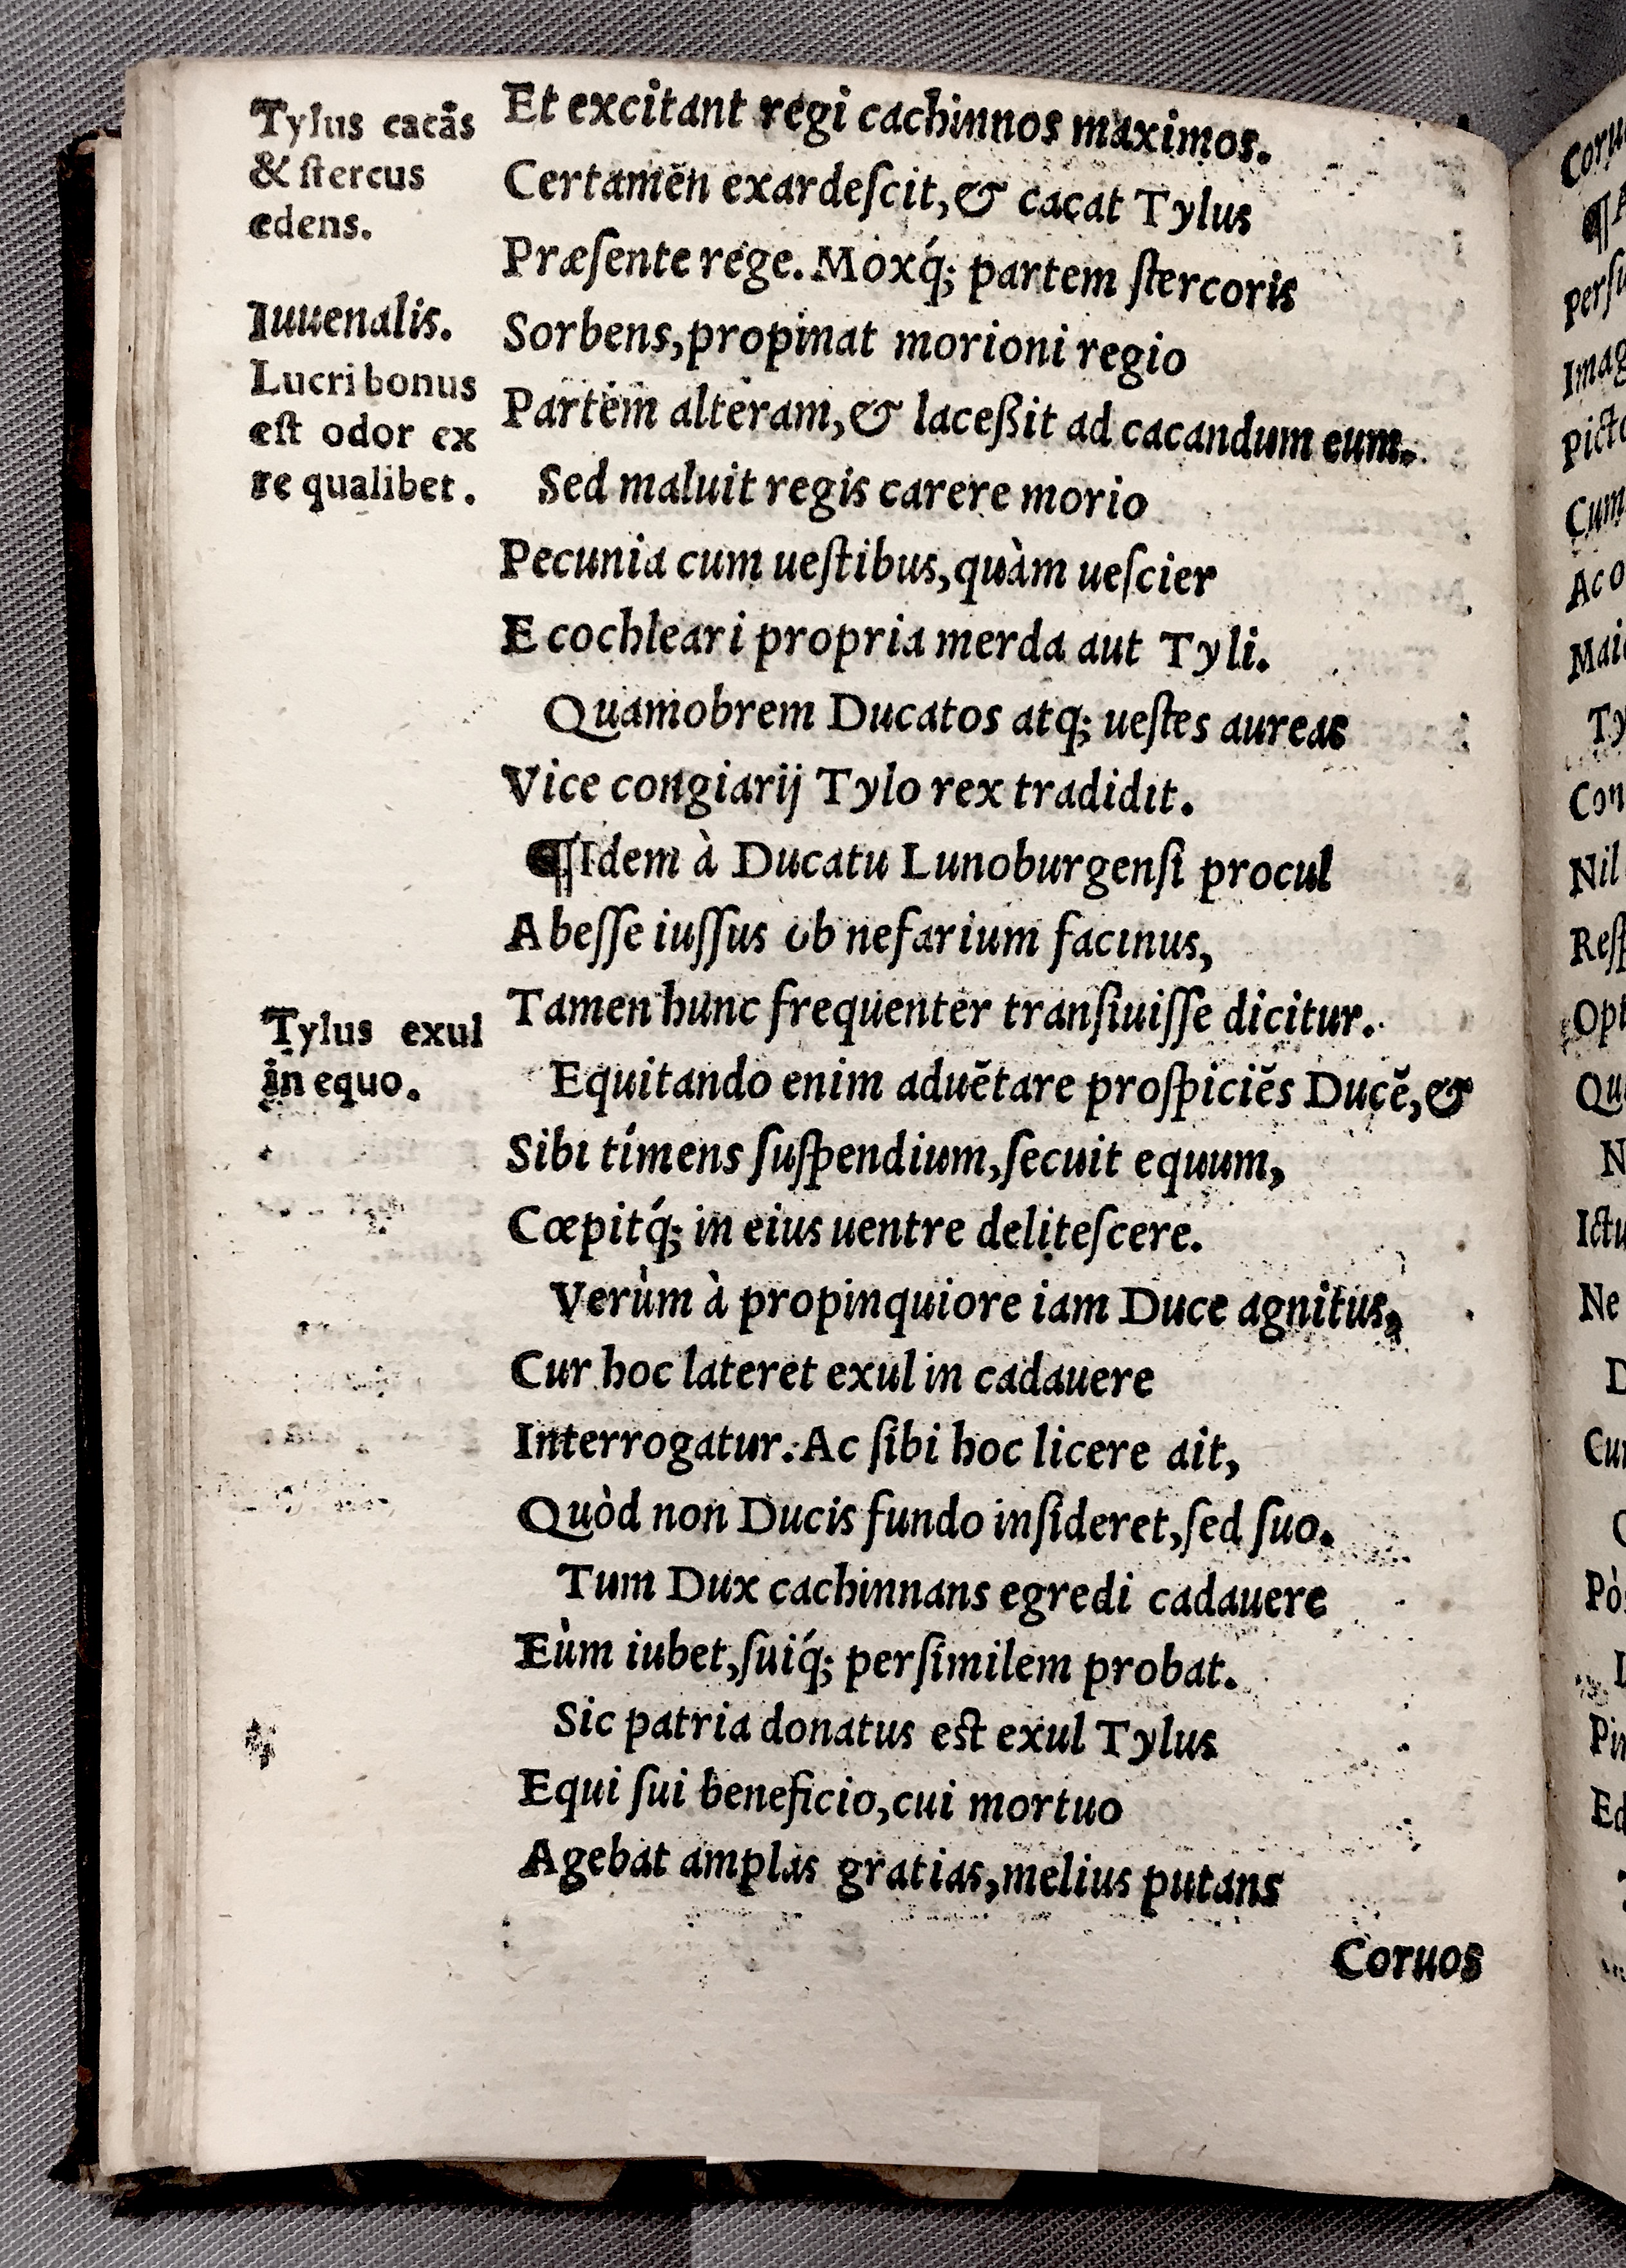 Tylus cacãs
& ſtercus
edens.
Iuuenalis.
Lucri bonus
eſt odor ex
re qualibet.
Tylus exul
in equo.
Et excitant regi cachinnos maximos.
Certamẽn exardeſcit, & cacat Tylus
Præſente rege. Moxq́; partem ſtercoris
Sorbens, propinat morioni regio
Partem alteram, & laceßit ad cacandum eum.
Sed maluit regis carere morio
Pecunia cum ueſtibus, quàm ueſcier
E cochleari propria merda aut Tyli.
Quamobrem Ducatos atq; ueſtes aureas
Vice congiarij Tylo rex tradidit.
¶Idem à Ducatu Lunoburgenſi procul
Abeſſe iuſſus ob nefarium facinus,
Tamen hunc frequenter tranſiuiſſe dicitur.
Equitando enim aduẽtare proſpiciẽs Ducẽ, &
Sibi timens ſuſpendium, ſecuit equum,
Cœpitq́; in eius uentre deliteſcere.
Verùm à propinquiore iam Duce agnitus,
Cur hoc lateret exul in cadauere
Interrogatur. Ac ſibi hoc licere ait,
Quòd non Ducis fundo inſideret, ſed ſuo.
Tum Dux cachinnans egredi cadauere
Eùm iubet, ſuiq́; perſimilem probat.
Sic patria donatus eſt exul Tylus
Equi ſui beneficio, cui mortuo
Agebat amplas gratias, melius putans
Coruos